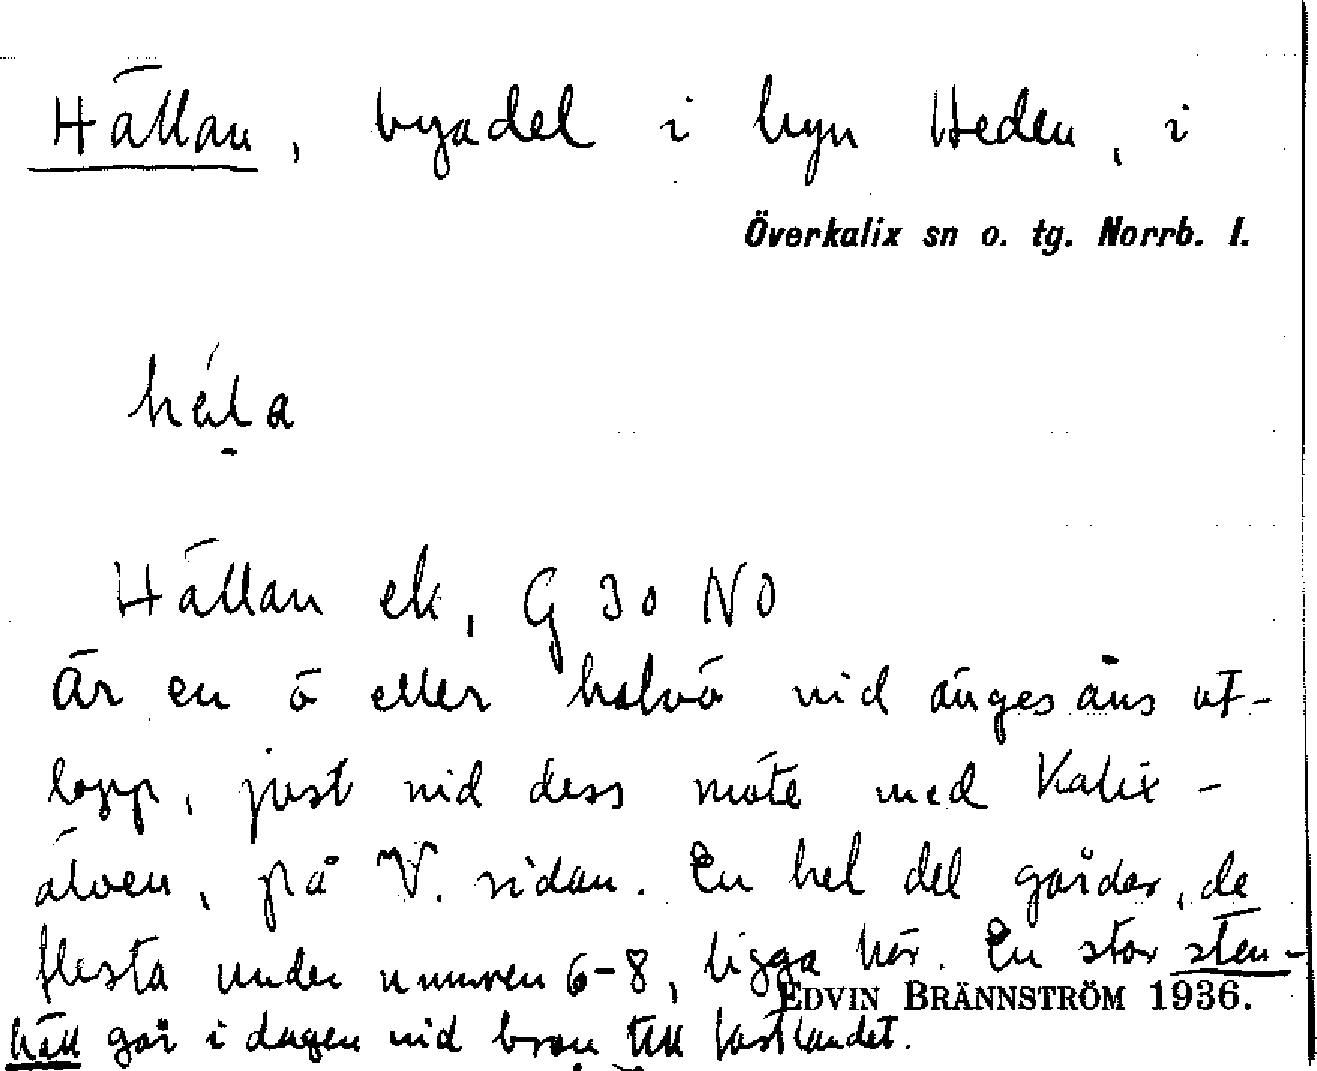 Hällan, byadel i byn Heden, i
Överkalix sn o. tg. Norrb. l.
Hällan ek, G 30 NO
Är en ö eller halvö vid ängesåns ut-
lopp, just vid dess möte med Kalix-
älven, på V. sidan. En hel del gårdar, de
flesta under numren 6-8, ligga här. En stor sten-
häll går i dagen vid bron till fastlandet.
EDVIN BRÄNNSTRÖM 1936.